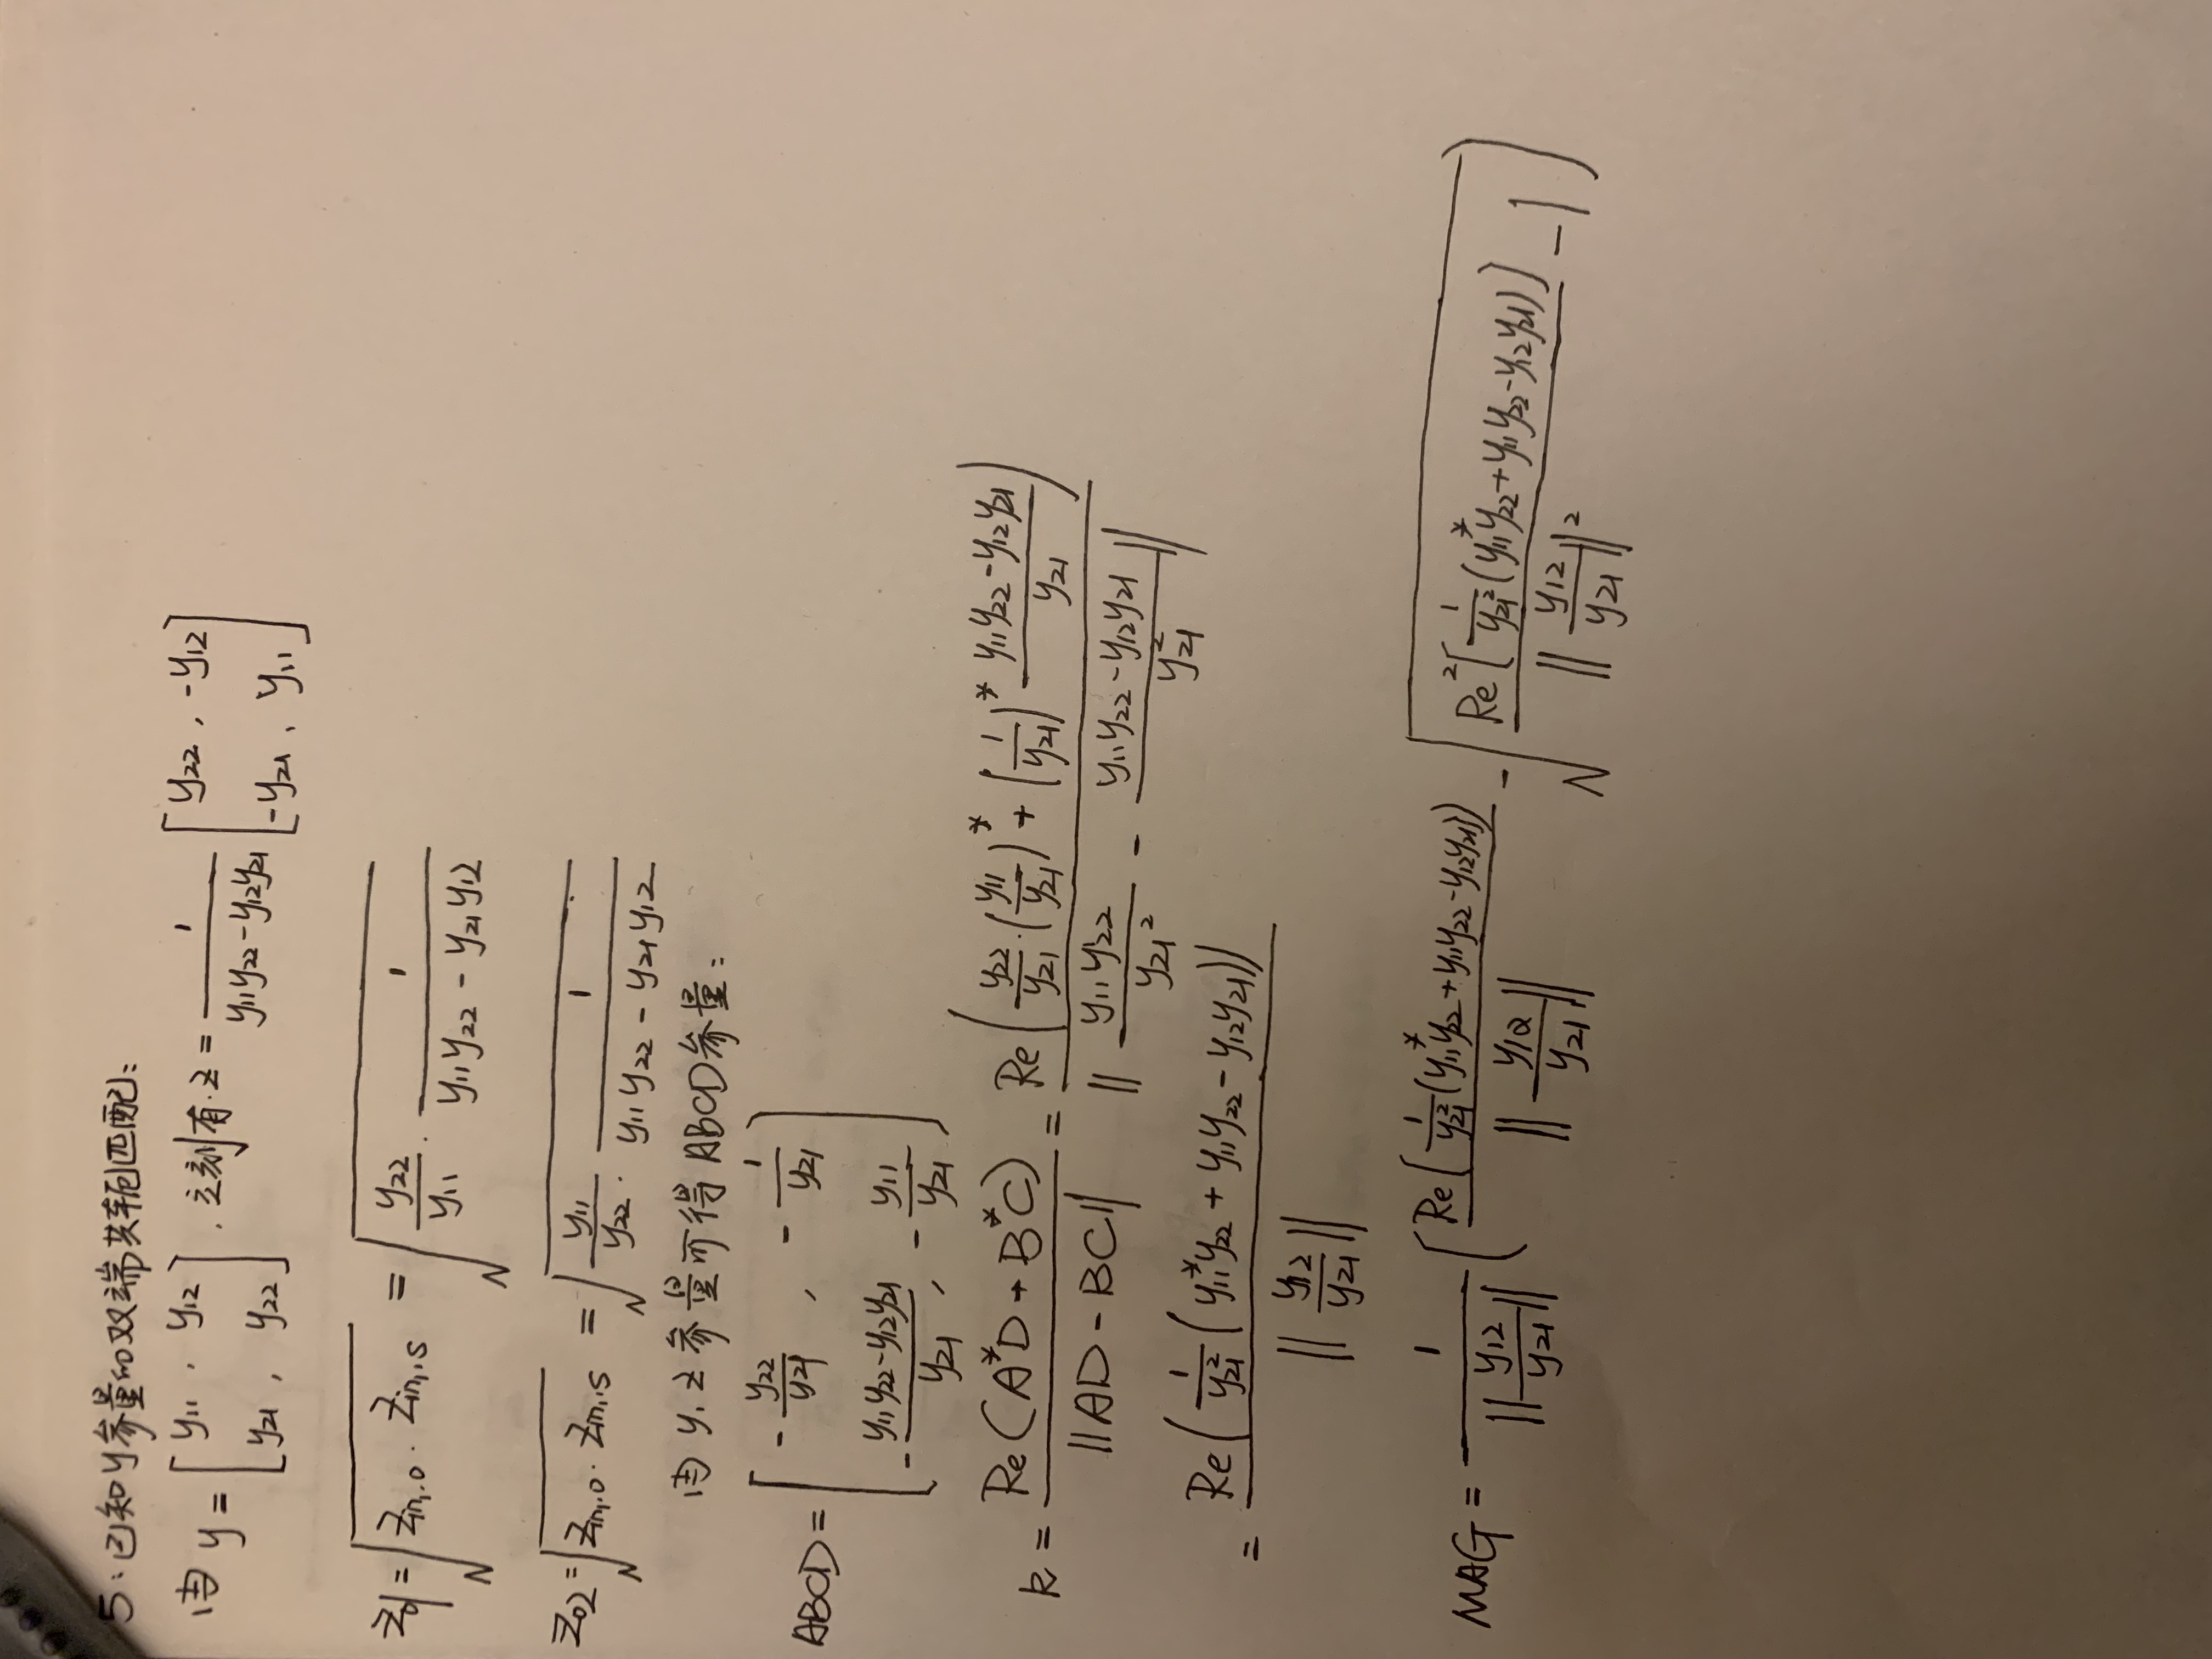 5：已知y参量的双端共轭匹配：
由 y = [ y11 , y12 ; y21 , y22 ] , 立刻有 . z = 1/(y11y22 - y12y21) [ y22 , -y12 ; -y21 , y11 ]
Z01 = √(Zin,o · Zin,s) = √( y22/y11 · 1/(y11y22 - y21y12) )
Z02 = √(Zin,o · Zin,s) = √( y11/y22 · 1/(y11y22 - y21y12) )
由 y, z 参量可得 ABCD参量：
ABCD = [ -y22/y21 , -1/y21 ; -(y11y22 - y12y21)/y21 , -y11/y21 ]
k = Re(A*D + B*C) / ||AD - BC|| = Re( y22/y21 · (y11/y21)* + (1/y21)* (y11y22 - y12y21)/y21 ) / || y11y22/y21² - (y11y22 - y12y21)/y21² ||
= Re( 1/y21² ( y11*y22 + y11y22 - y12y21 ) ) / || y12/y21 ||
MAG = 1/|| y12/y21 || ( Re[ 1/y21² ( y11*y22 + y11y22 - y12y21 ) ] / || y12/y21 || - √( Re²[ 1/y21² ( y11*y22 + y11y22 - y12y21 ) ] / || y12/y21 ||² - 1 ) )